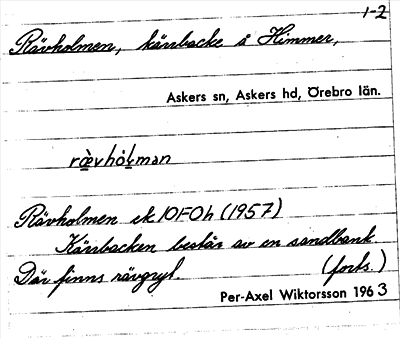 1-2
Rävholmen, kärrbacke å Himmer,
Askers sn, Askers hd, Örebro län.
rævhòlmən
Rävholmen ek 10F0h (1957)
Kärrbacken består av en sandbank.
Där finns rävgryt. (forts.)
Per-Axel Wiktorsson 1963